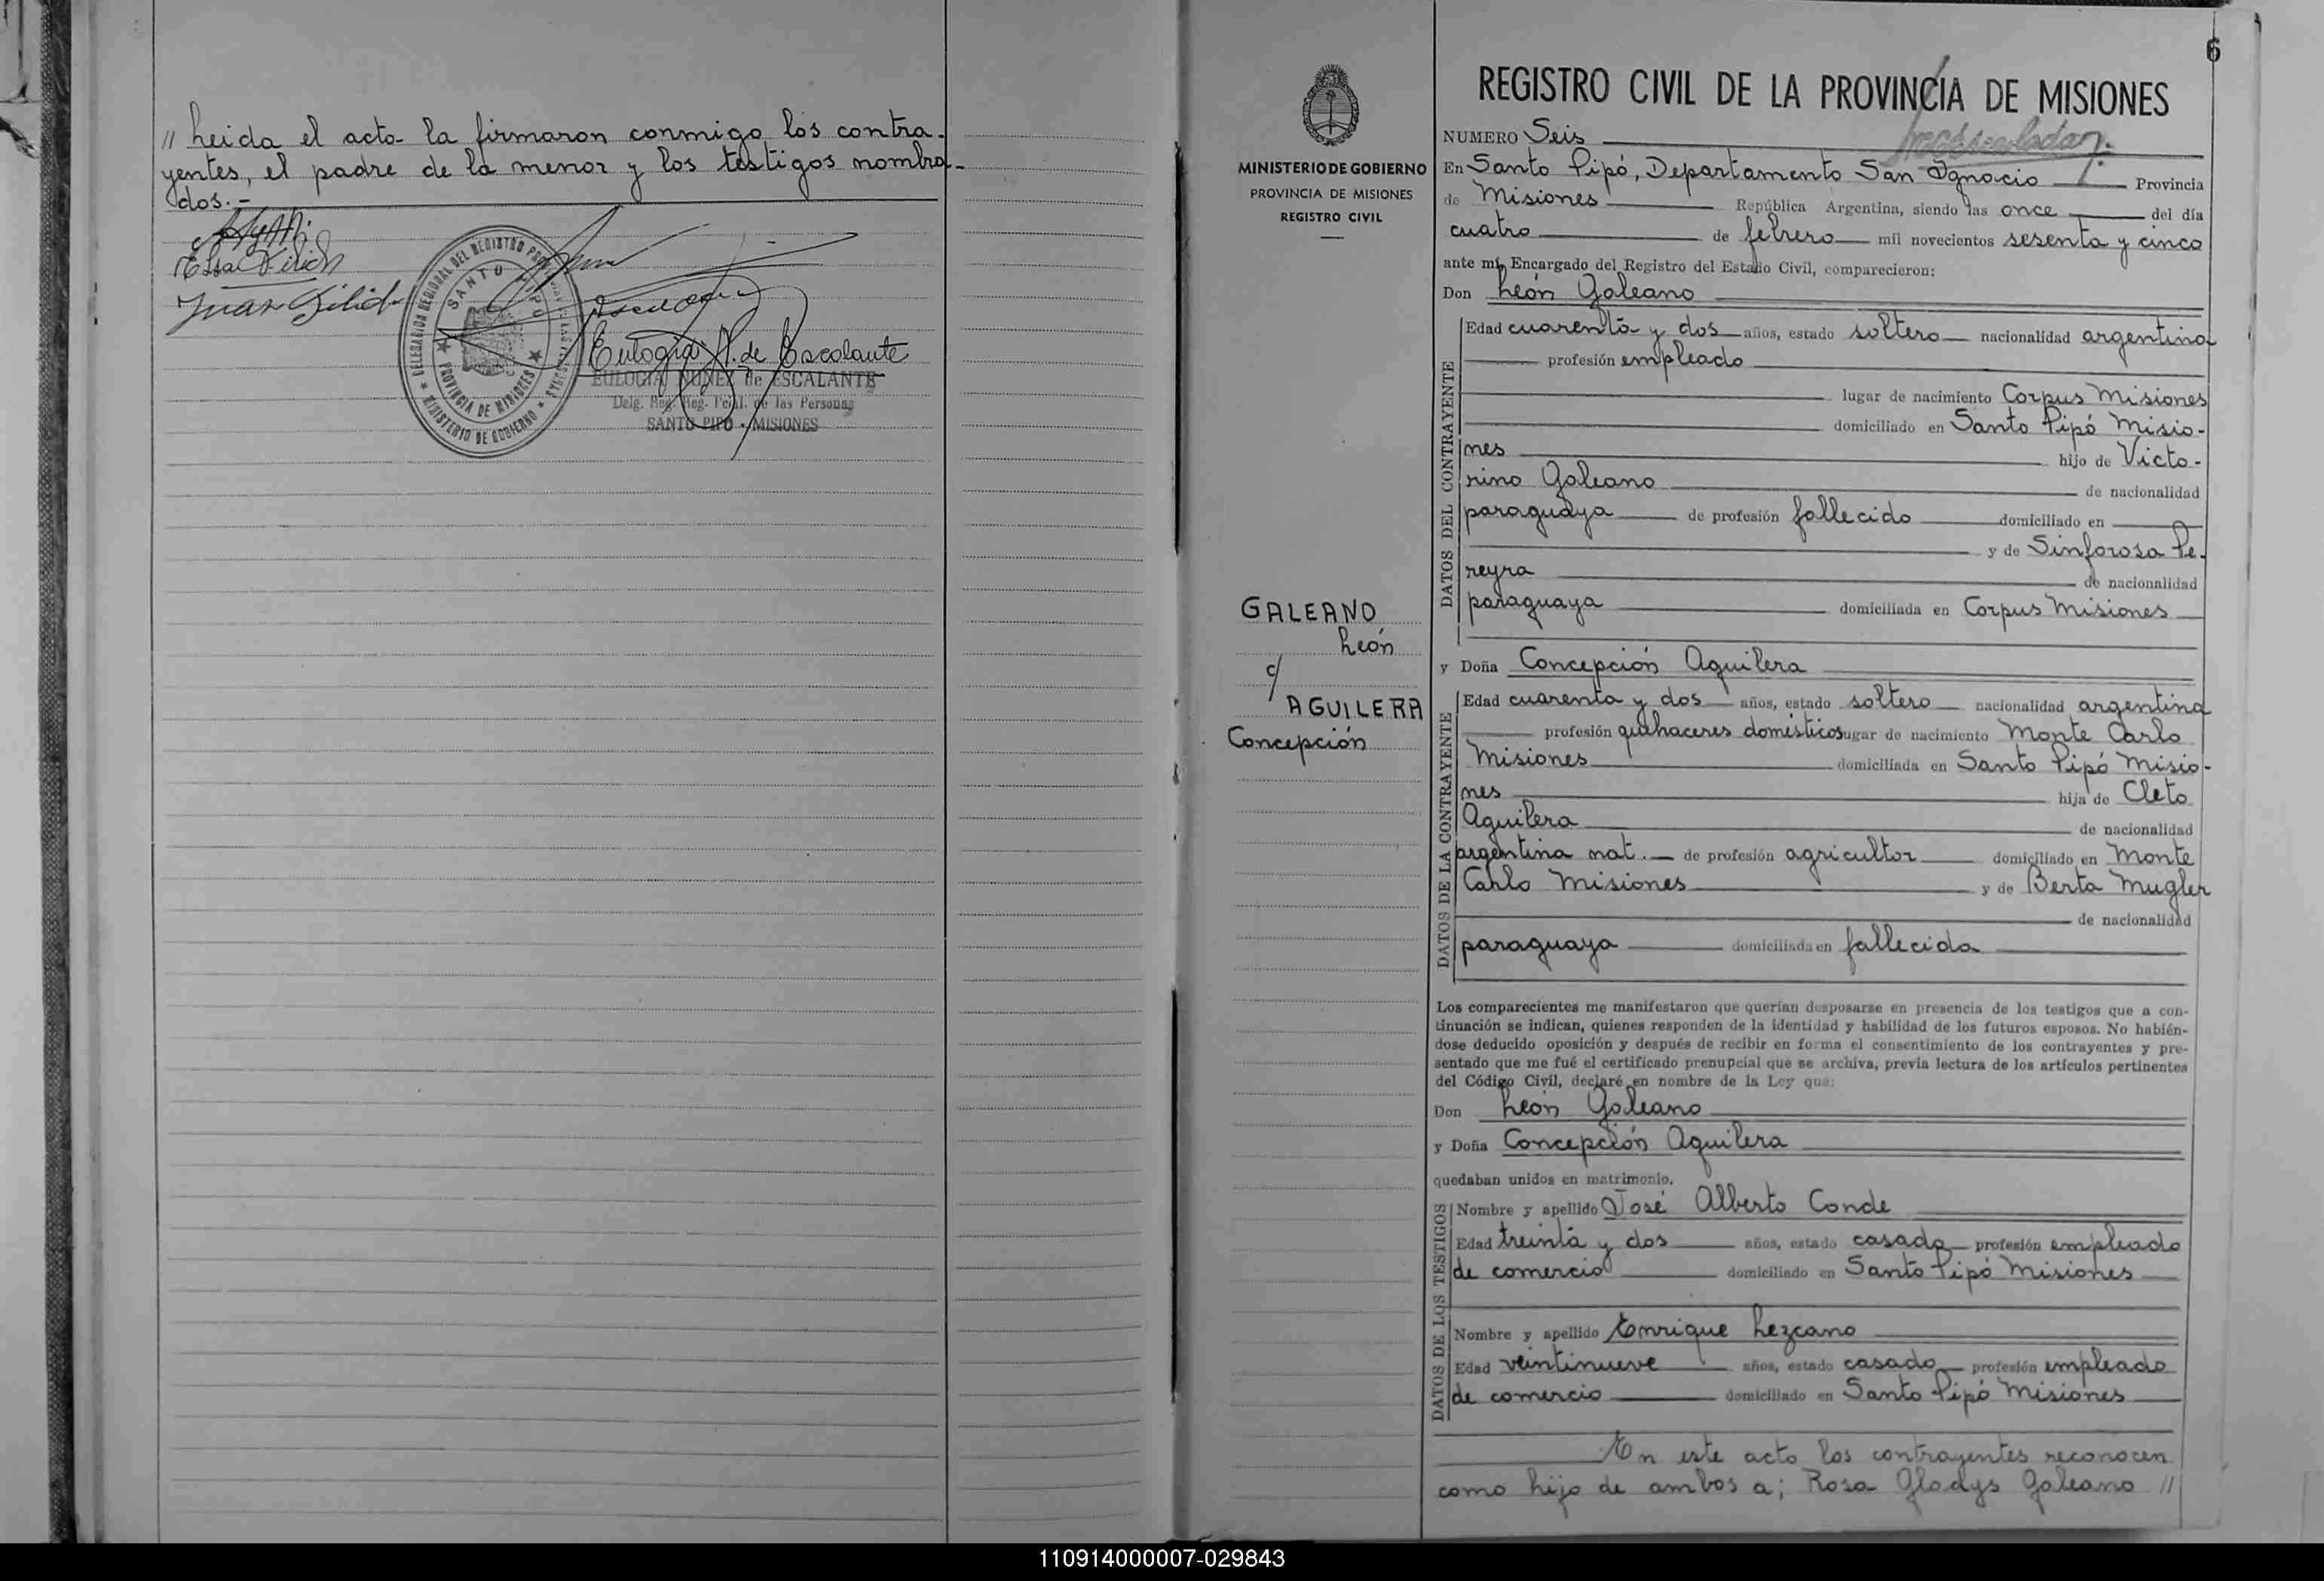 // Leida el acto la firmaron conmigo los contra-
yentes, el padre de la menor y los testigos nombra-
dos.-
DELEGACION REGIONAL DEL REGISTRO
SANTO PIPO
PROVINCIA DE MISIONES
MINISTERIO DE GOBIERNO
Eulogia N. de Escalante
EULOGIA NUÑEZ de ESCALANTE
Delg. Reg. Reg. Pcial. de las Personas
SANTO PIPO - MISIONES
6
MINISTERIO DE GOBIERNO
PROVINCIA DE MISIONES
REGISTRO CIVIL
GALEANO
León
c/
AGUILERA
Concepción
REGISTRO CIVIL DE LA PROVINCIA DE MISIONES
NUMERO Seis
En Santo Pipó, Departamento San Ignacio Provincia
de Misiones República Argentina, siendo las once del día
cuatro de febrero mil novecientos sesenta y cinco
ante mí, Encargado del Registro del Estado Civil, comparecieron:
Don León Galeano
DATOS DEL CONTRAYENTE
Edad cuarenta y dos años, estado soltero nacionalidad argentina
profesión empleado
lugar de nacimiento Corpus Misiones
domiciliado en Santo Pipó Misio-
nes hijo de Victo-
rino Galeano de nacionalidad
paraguaya de profesión fallecido domiciliado en
y de Sinforosa Pe-
reyra de nacionalidad
paraguaya domiciliada en Corpus Misiones
y Doña Concepción Aguilera
DATOS DE LA CONTRAYENTE
Edad cuarenta y dos años, estado soltero nacionalidad argentina
profesión quehaceres domésticos lugar de nacimiento Monte Carlo
Misiones domiciliada en Santo Pipó Misio-
nes hija de Cleto
Aguilera de nacionalidad
argentina nat. de profesión agricultor domiciliado en Monte
Carlo Misiones y de Berta Mugler
de nacionalidad
paraguaya domiciliada en fallecida
Los comparecientes me manifestaron que querían desposarse en presencia de los testigos que a con-
tinuación se indican, quienes responden de la identidad y habilidad de los futuros esposos. No habién-
dose deducido oposición y después de recibir en forma el consentimiento de los contrayentes y pre-
sentado que me fué el certificado prenupcial que se archiva, previa lectura de los artículos pertinentes
del Código Civil, declaré en nombre de la Ley que:
Don León Galeano
y Doña Concepción Aguilera
quedaban unidos en matrimonio.
DATOS DE LOS TESTIGOS
Nombre y apellido José Alberto Conde
Edad treinta y dos años, estado casado profesión empleado
de comercio domiciliado en Santo Pipó Misiones
Nombre y apellido Enrique Lezcano
Edad veintinueve años, estado casado profesión empleado
de comercio domiciliado en Santo Pipó Misiones
En este acto los contrayentes reconocen
como hijo de ambos a; Rosa Gladys Galeano //
110914000007-029843